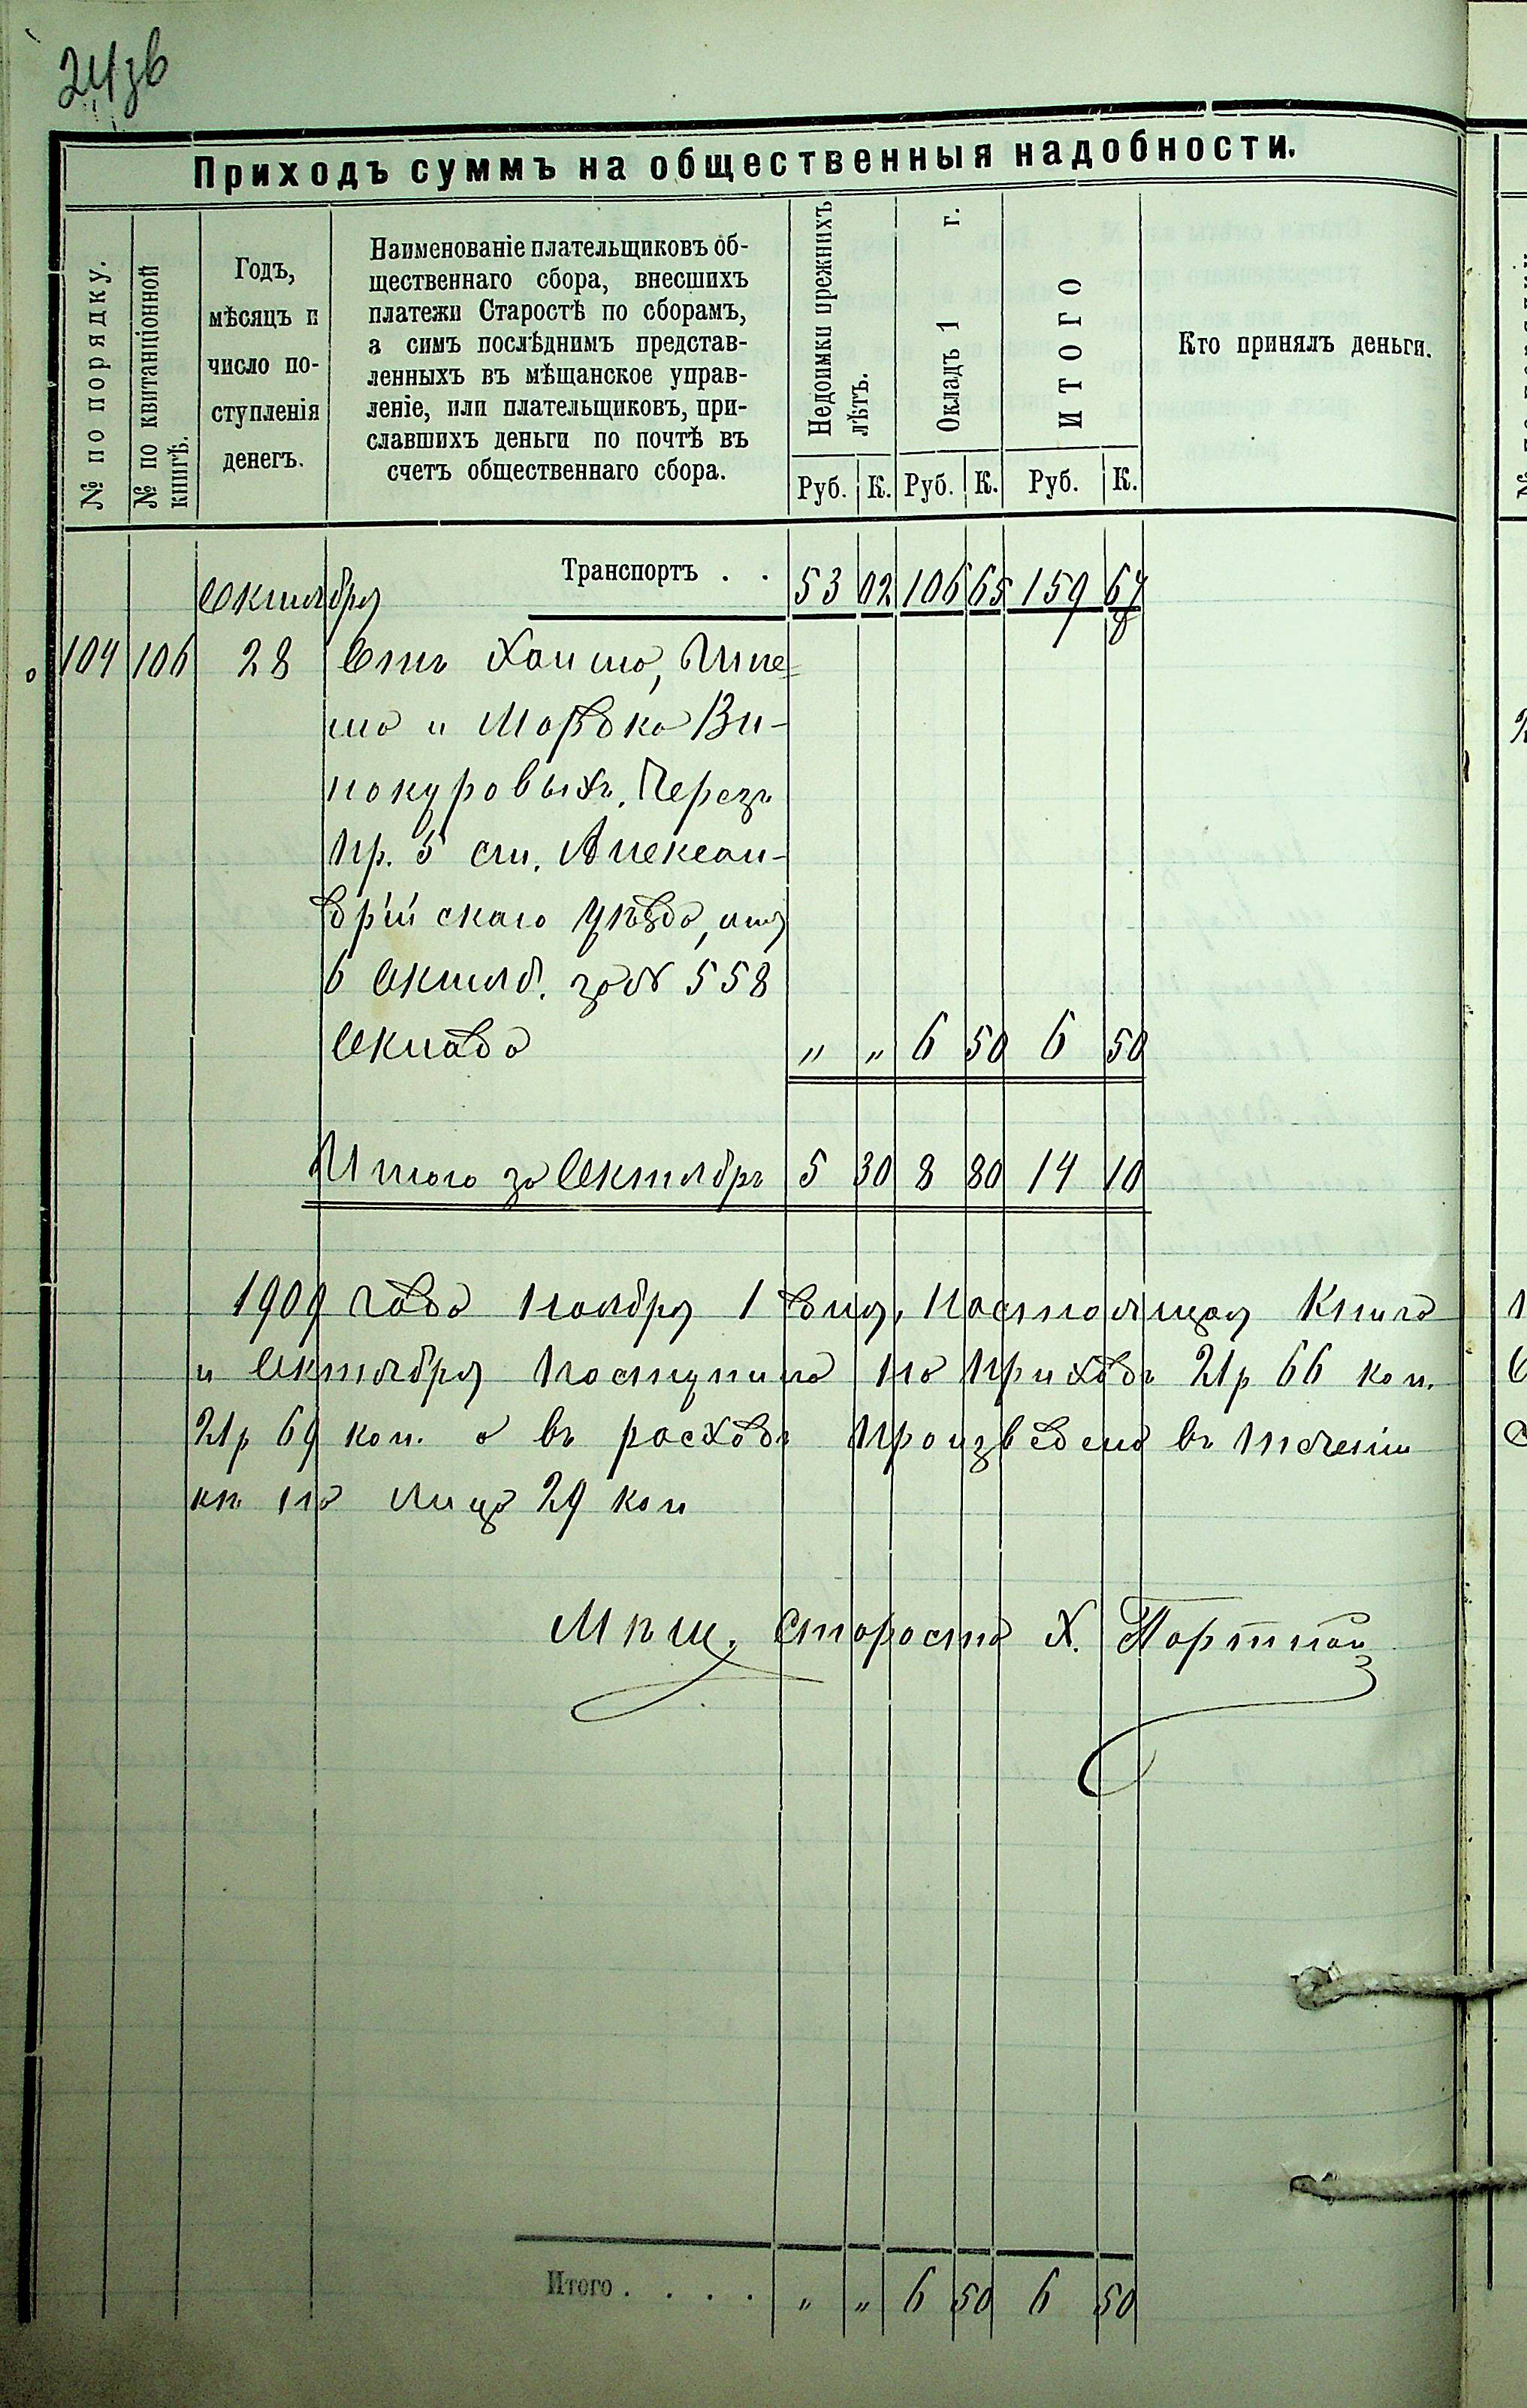 24зв
Приходъ суммъ на общественныя надобности.
№ по порядку.
№ по квитанціонной
книгѣ.
Годъ,
мѣсяцъ и
число по-
ступленія
денегъ.
Наименованіе плательщиковъ об-
щественнаго сбора, внесшихъ
платежи Старостѣ по сборамъ,
а симъ послѣднимъ представ-
ленныхъ въ мѣщанское управ-
леніе, или плательщиковъ, при-
славшихъ деньги по почтѣ въ
счетъ общественнаго сбора.
Недоимки прежнихъ
лѣтъ.
Окладъ 1 г.
ИТОГО
Кто принялъ деньги.
Руб. К. Руб. К. Руб. К.
Транспортъ . . 53 02 106 65 159 67
Октября
104 106 28 Отъ Хаима,
и Мордка Ви-
нокуровыхъ. Черезъ
Пр. 5 ст. Александ-
рійскаго уѣзда, отъ
6 Октяб. за № 558
Оклада " " 6 50 6 50
Итого за Октябрь 5 30 8 80 14 10
1909 года ноября 1 дня, Настоящая Книга
и Октября поступило на приходъ 21р 66 коп.
21р 69 коп. а въ расходъ произведено въ теченіи
къ на лицо 29 коп
Мѣщ. Староста Х. Портной
Итого . . . . " " 6 50 6 50